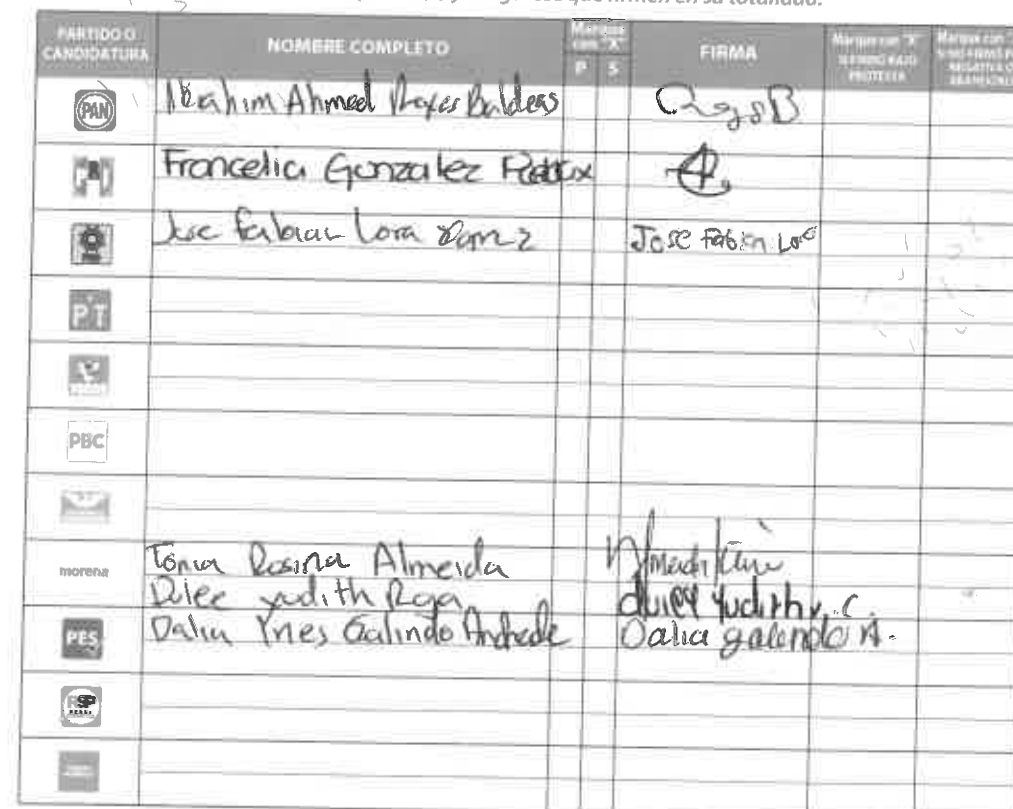 que firmen en su totalidad.
PARTIDO O CANDIDATURA NOMBRE COMPLETO Marque con "X" P S FIRMA Marque con "X" SI FIRMÓ BAJO PROTESTA Marque con
PAN Ibrahim Ahmed Reyes Balderas
Francelia Gonzalez
Jose Fabian Lora Jose Fabian Lora
PT
PBC
morena Tonia Rosina Almeida
Dulce yudith Roja dulce Yudith r. C.
PES Dalia Ynes Galindo Andrade Dalia galindo A.
RSP